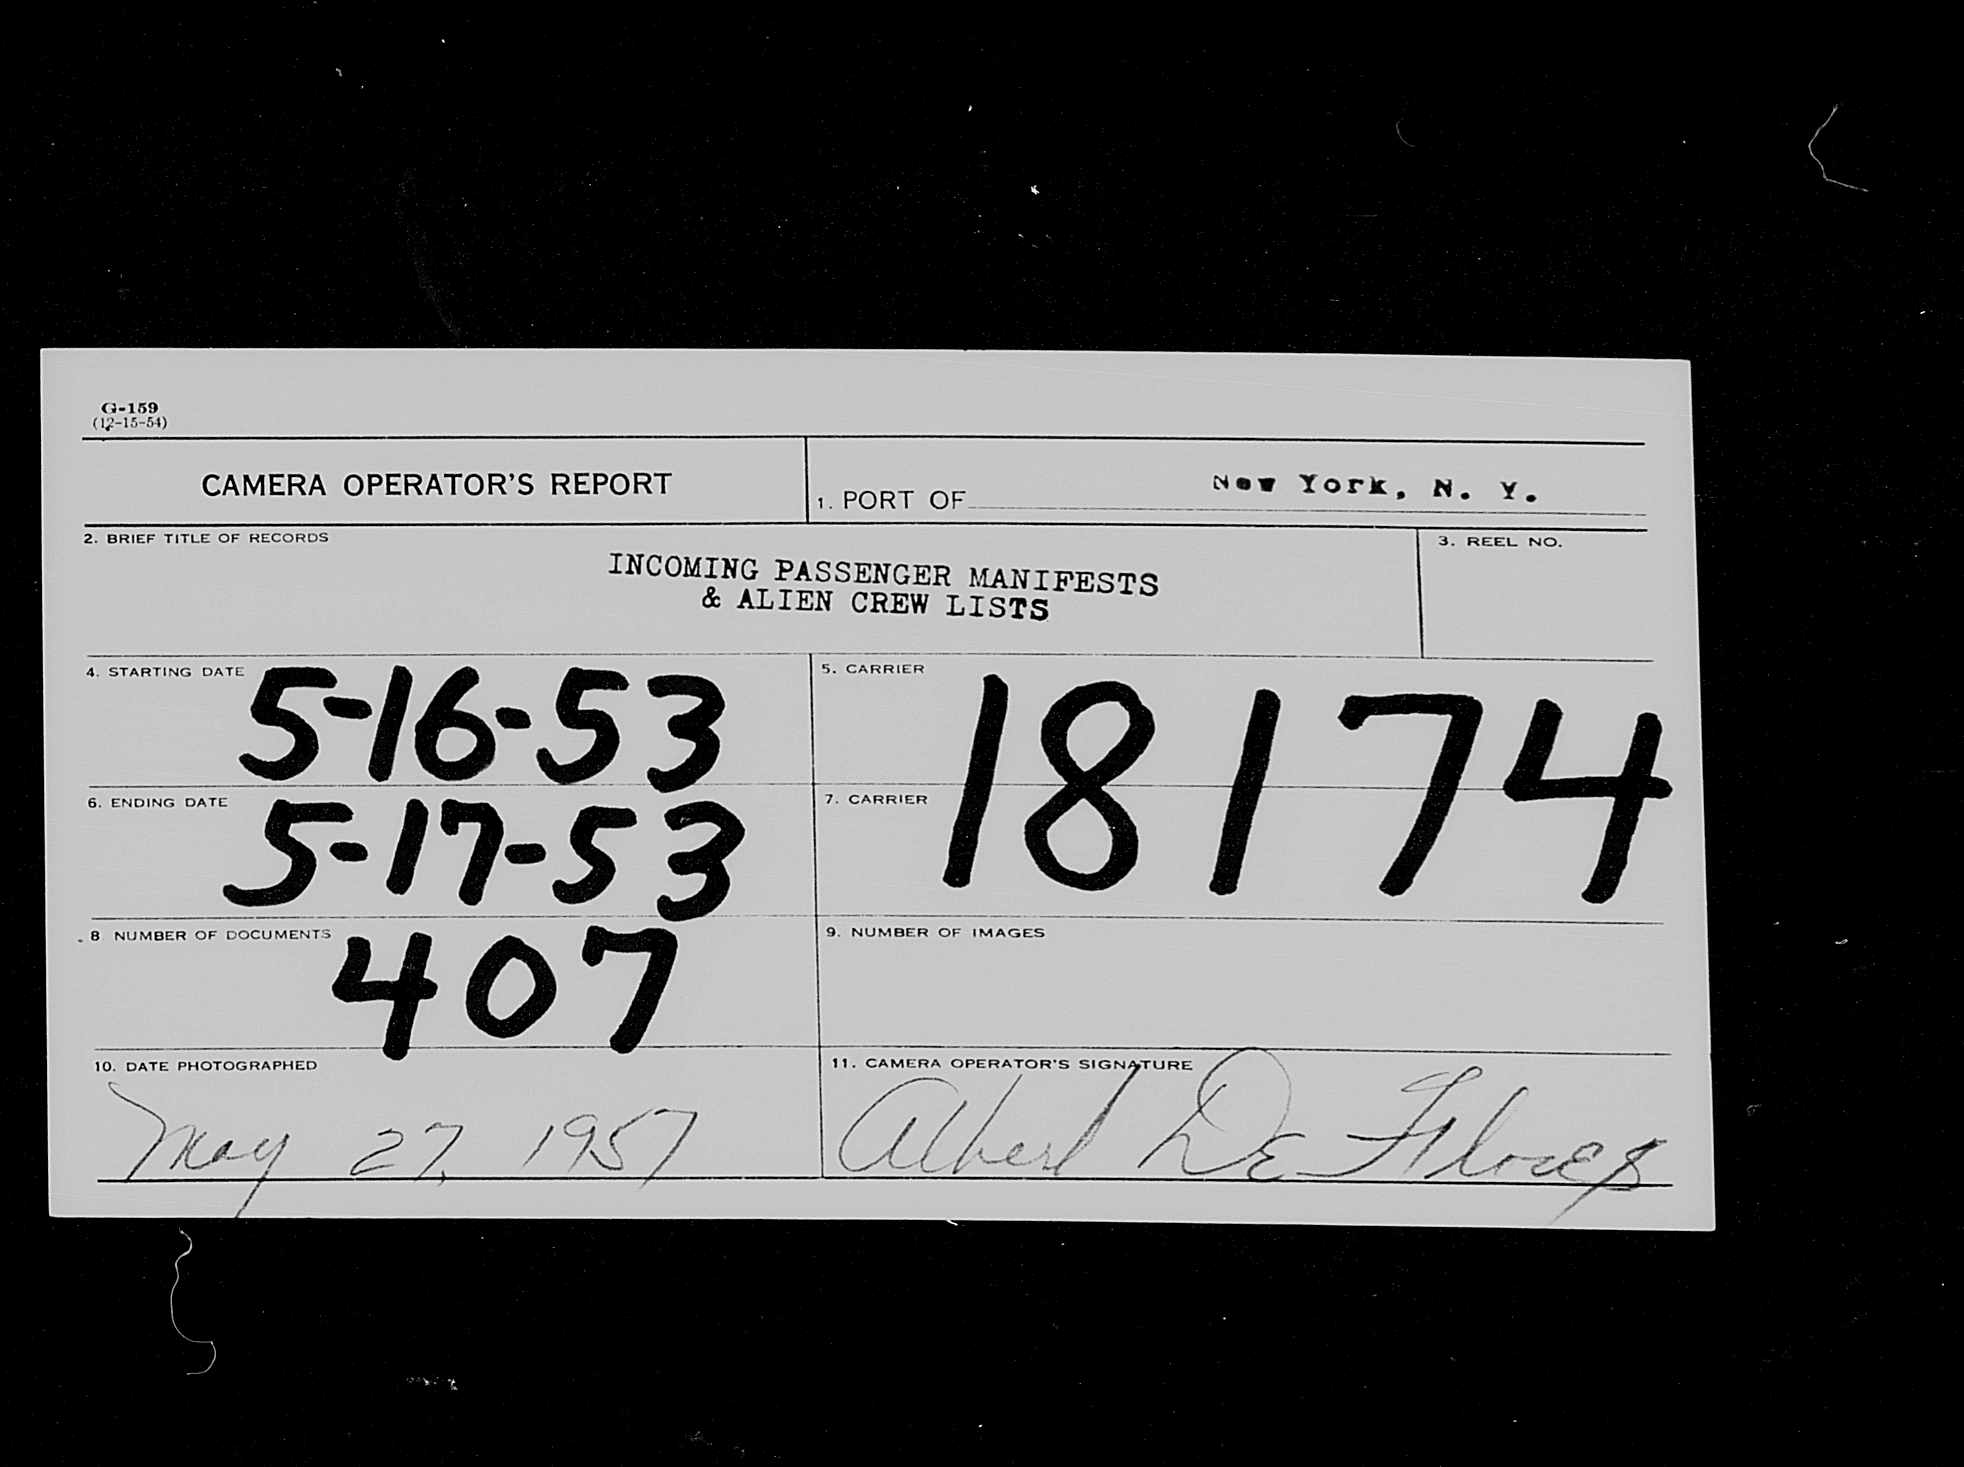 G-159
(12-15-54)
CAMERA OPERATOR'S REPORT
1. PORT OF New York, N. Y.
2. BRIEF TITLE OF RECORDS
INCOMING PASSENGER MANIFESTS
& ALIEN CREW LISTS
3. REEL NO.
4. STARTING DATE 5-16-53
5. CARRIER
18174
6. ENDING DATE 5-17-53
7. CARRIER
8 NUMBER OF DOCUMENTS 407
9. NUMBER OF IMAGES
10. DATE PHOTOGRAPHED
May 27, 1957
11. CAMERA OPERATOR'S SIGNATURE
Albert De Flores